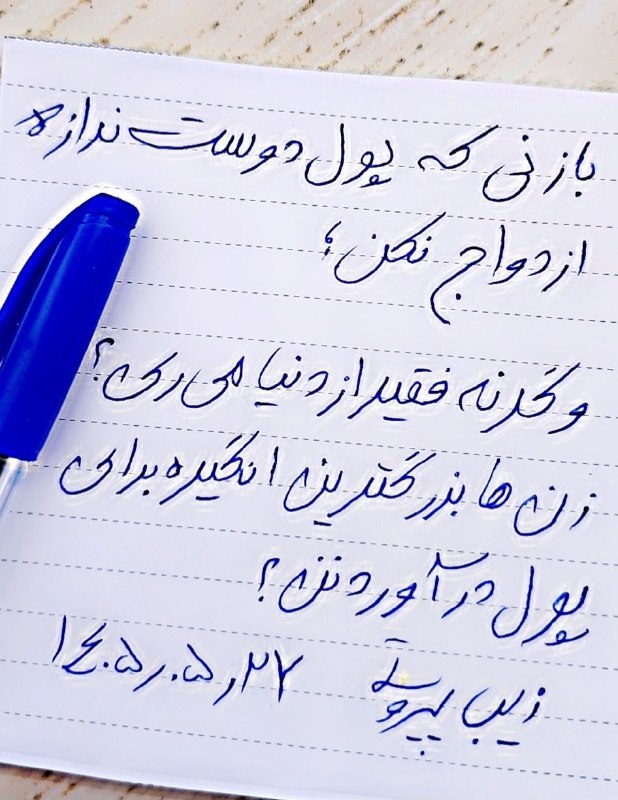 با زنی که پول دوست ندازه
ازدواج نکن؛
وگرنه فقیر از دنیا می ری؟
زن ها بزرگترین انگیزه برای
پول درآوردنن؟
زیب ۱۴۰۵٫۰۵٫۲۷